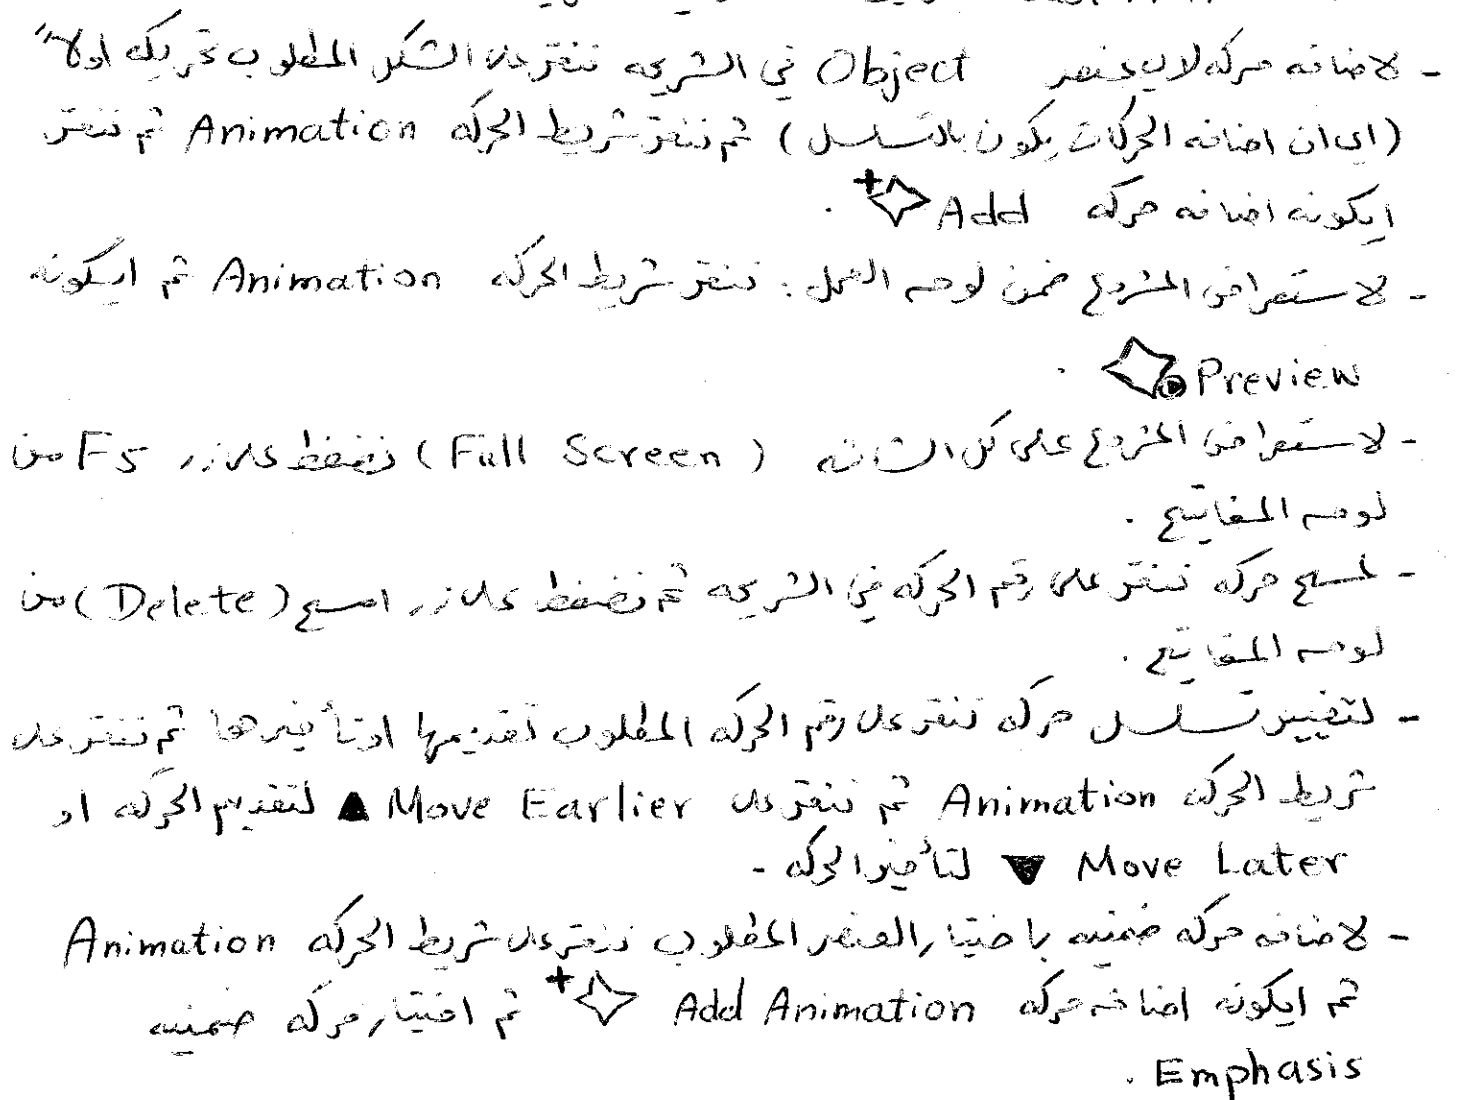 - لاضافه حركه لاي عنصر Object في الشريحه ننقر على الشكل المطلوب تحريكه اولاً
(اي ان اضافه الحركات يكون بالتسلسل) ثم ننقر شريط الحركه Animation ثم ننقر
ايكونه اضافه حركه Add .
- لاستعراض المشروع ضمن لوحه العمل : ننقر شريط الحركه Animation ثم ايكونه
Preview .
- لاستعراض المشروع على كل الشاشه (Full Screen) نضغط على زر F5 من
لوحه المفاتيح .
- لمسح حركه ننقر على رقم الحركه في الشريحه ثم نضغط على زر امسح (Delete) من
لوحه المفاتيح .
- لتغيير تسلسل حركه ننقر على رقم الحركه المطلوب تقديمها او تأخيرها ثم ننقر على
شريط الحركه Animation ثم ننقر على Move Earlier ▲ لتقديم الحركه او
Move Later ▼ لتأخير الحركه -
- لاضافه حركه ضمنيه باختيار العنصر المطلوب ننقر على شريط الحركه Animation
ثم ايكونه اضافه حركه Add Animation ثم اختيار حركه ضمنيه
Emphasis .